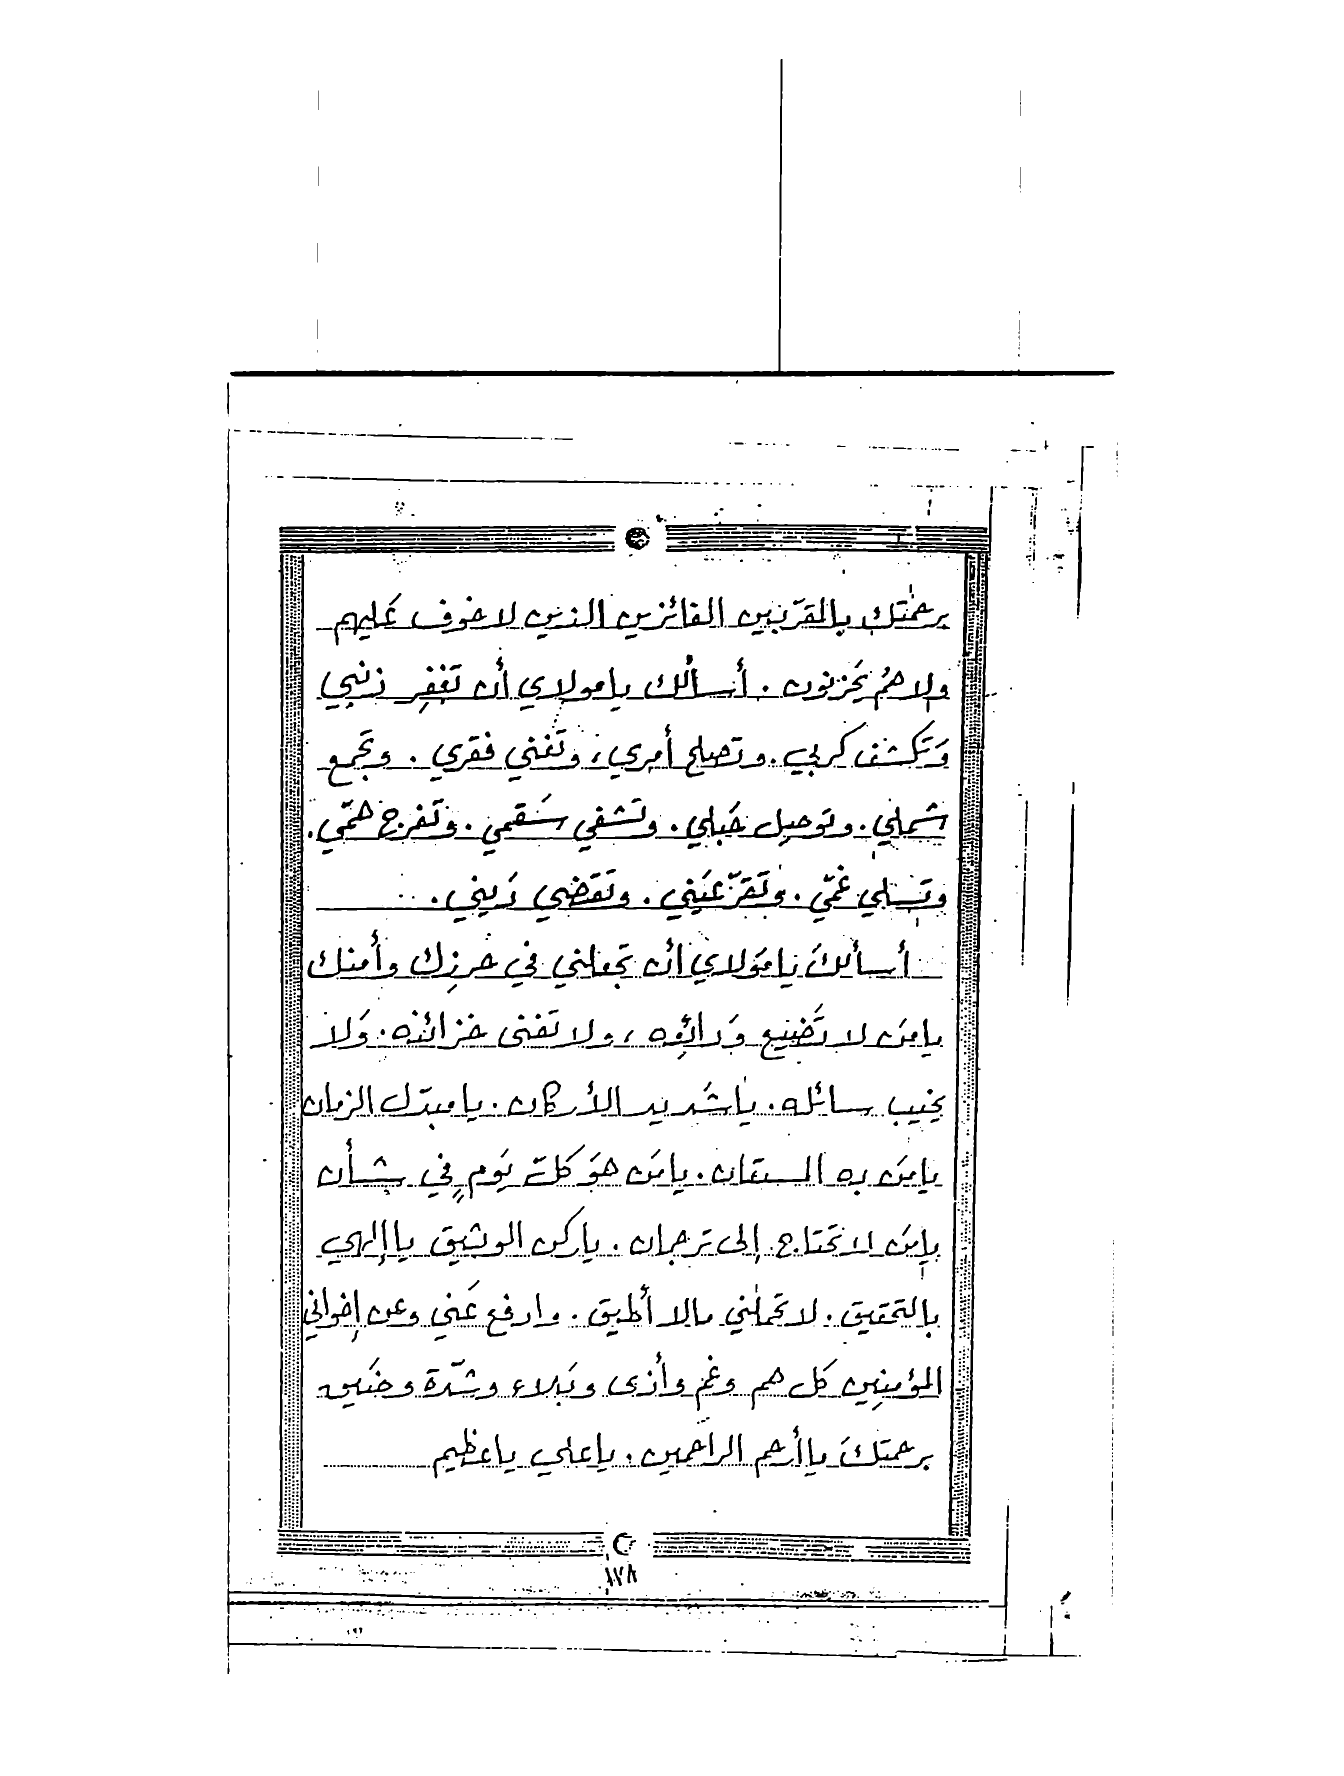 برحمتك بالمقرّبين الفائزين الذين لا خوف عَليهم
ولا همُ يَحزنون . أسألك يا مولاي أن تَغفِر ذنبي
وَتَكشف كربي . وتصلح أمري ، وتَغني فقري . وتَجمع
شملي . وتوصِل حَبلي . وتَشفي سَقمي . وتَفرج همّي .
وتَسلي غمّي . وتَقرّ عَيني . وتَقضي دَيني .
أسألكَ يا مَولاي أن تجعلني في حرزك وأمنك
يا مَن لا تَضيع وَدائِعه ، ولا تَفنى خزائنه . وَلا
يخيب سائله . يا شَديد الأركان . يا مبدّل الزمان
يا مَن به المستعان . يا مَن هوَ كلّ يَومٍ في شأن
يا مَن لا يَحتاج إلى ترجمان . يا ركن الوثيق يا إلهي
بالتحقيق . لا تحملني ما لا أطيق . وارفع عَني وعن إخواني
المؤمنِين كل هم وغم وأذى وبَلاء وشدّة وضَيق
برحمتكَ يا أرحم الراحمين . يا علي يا عظيم
١٧٨